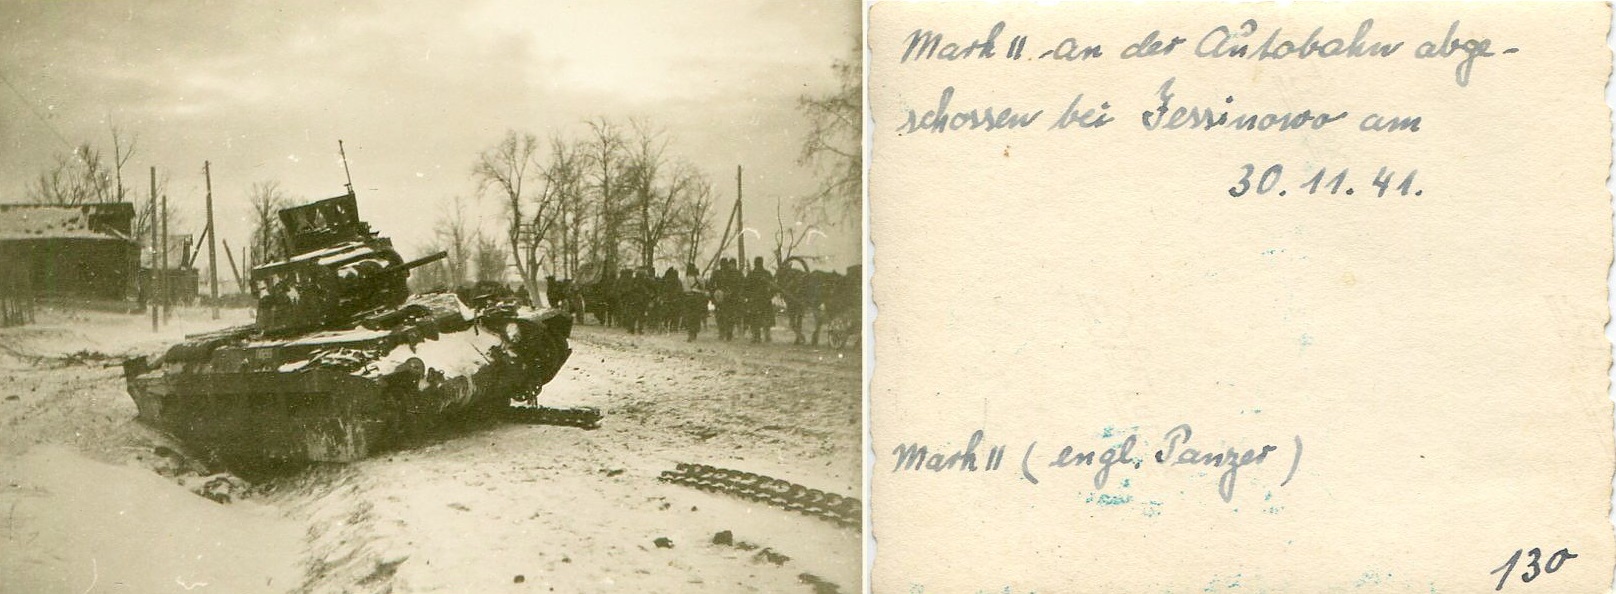 Mark II an der Autobahn abge-
schossen bei Jessinowo am
30. 11. 41.
Mark II ( engl. Panzer )
130